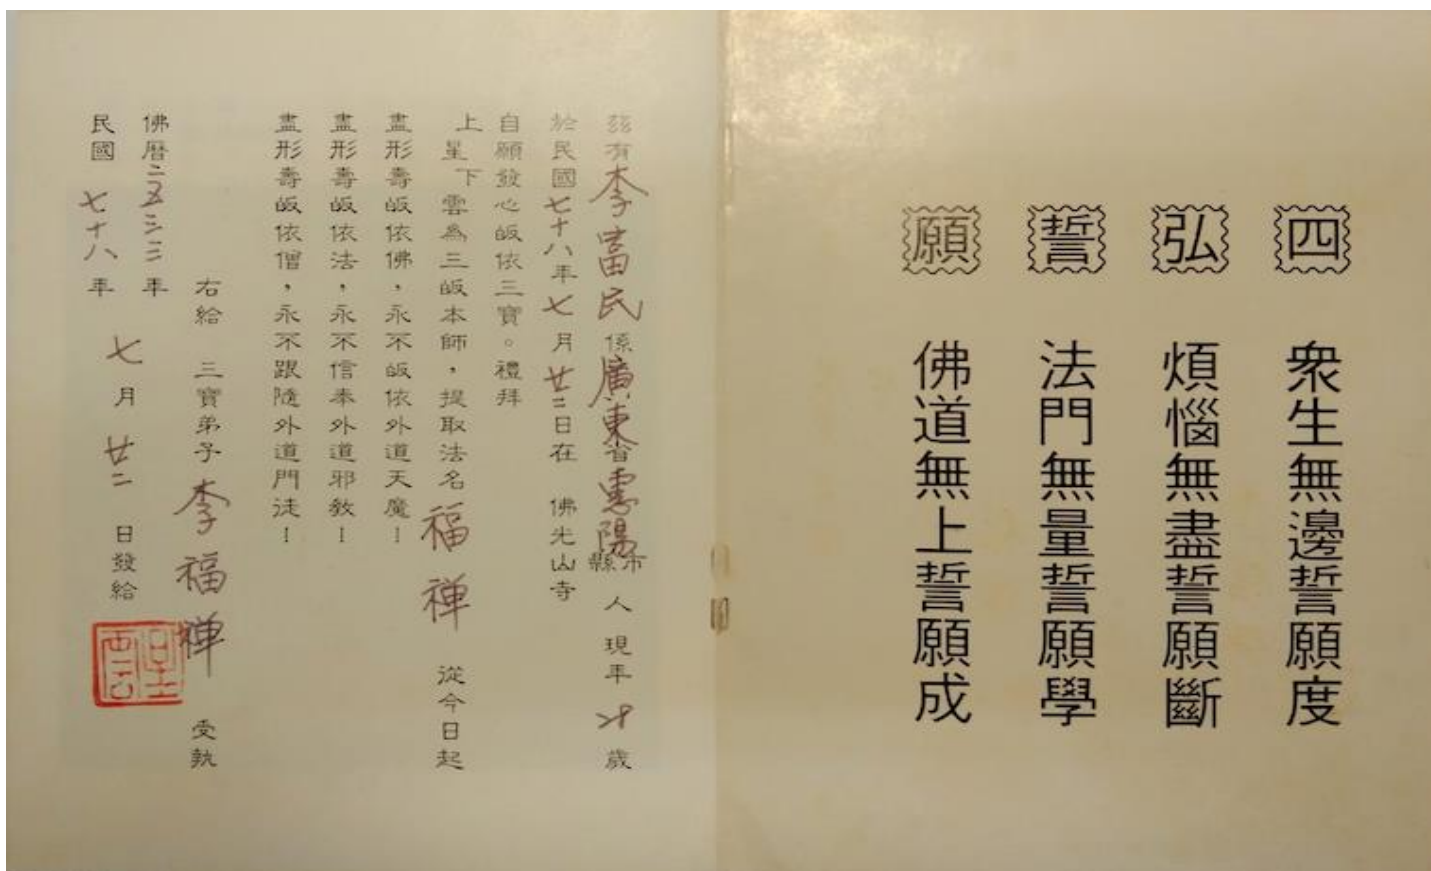 四弘誓願
眾生無邊誓願度
煩惱無盡誓願斷
法門無量誓願學
佛道無上誓願成
茲有李富民係廣東省惠陽縣市人現年才歲
於民國七十八年七月廿二日在佛光山寺
自願發心皈依三寶。禮拜
上星下雲為三皈本師,提取法名福禅從今日起
盡形壽皈依佛,永不皈依外道天魔!
盡形壽皈依法,永不信奉外道邪教!
盡形壽皈依僧,永不跟隨外道門徒!
右給三寶弟子李福禅受執
佛曆二五三三年
民國七十八年七月廿二日發給
星雲